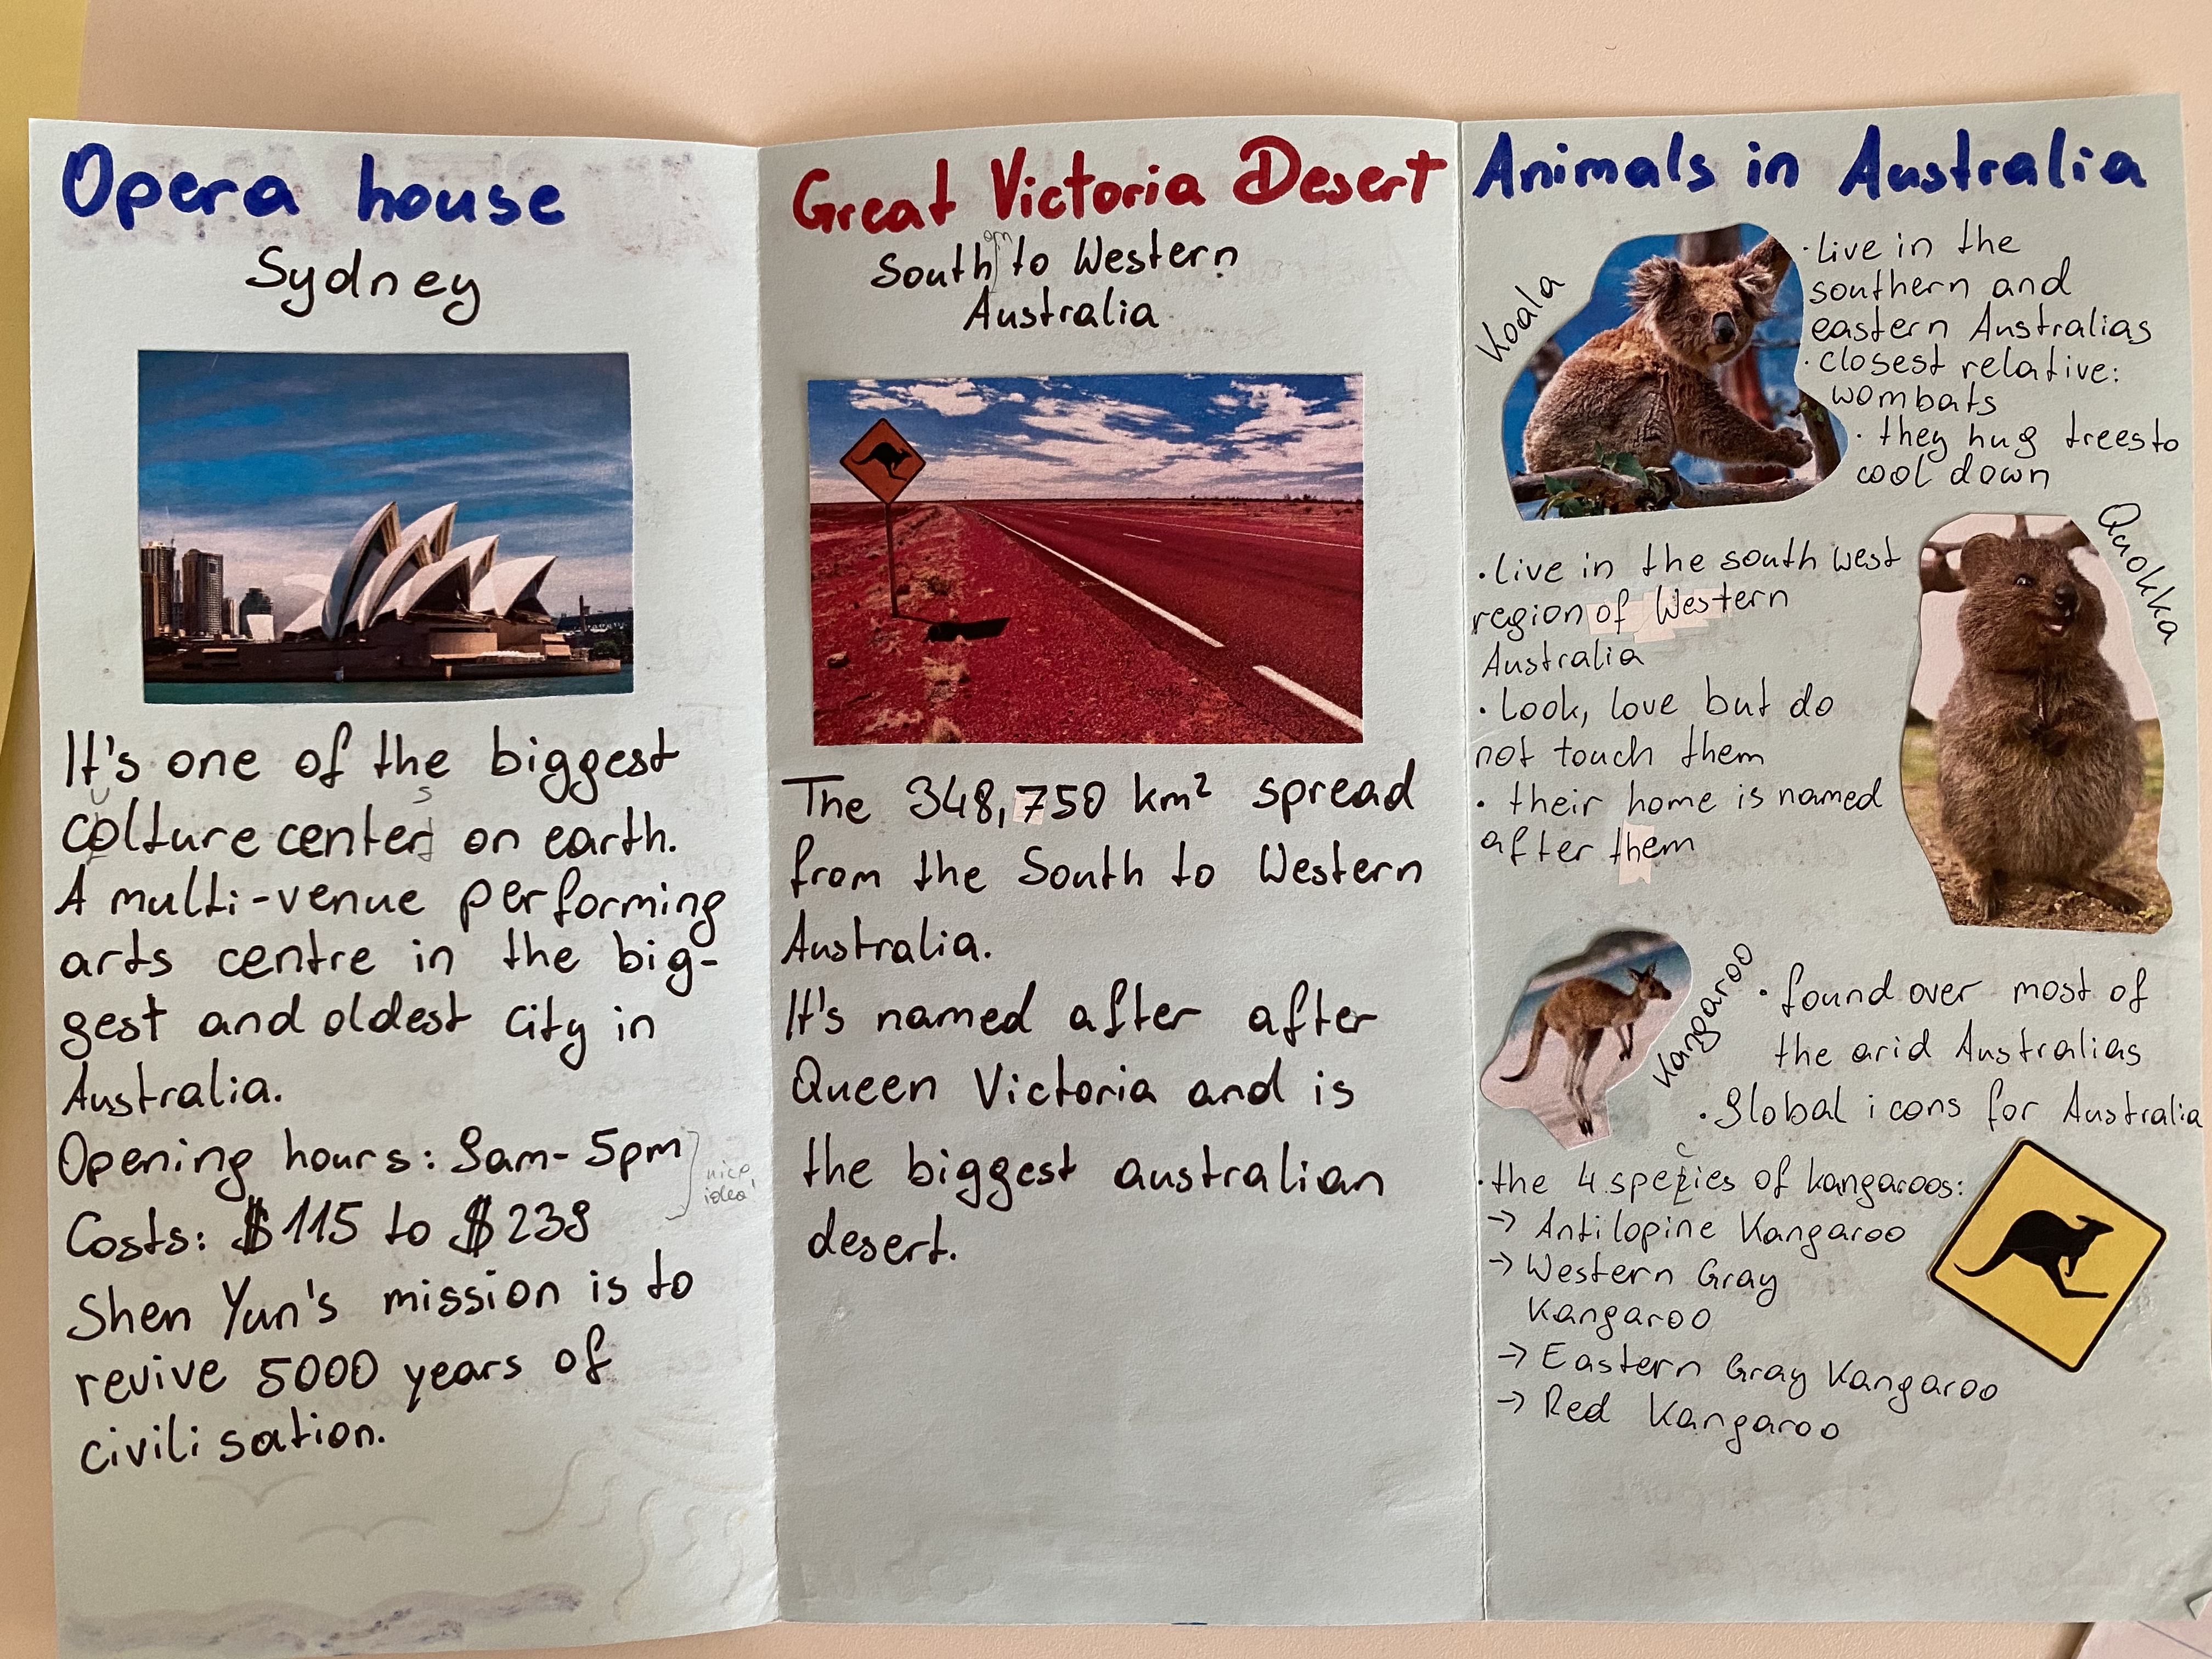 Opera house
Sydney
It's one of the biggest
u s
colture center on earth.
A multi-venue performing
arts centre in the big-
gest and oldest city in
Australia.
Opening hours: 9am-5pm
nice
idea!
Costs: $115 to $239
Shen Yun's mission is to
revive 5000 years of
civilisation.
Great Victoria Desert
om
South to Western
Australia
The 348,750 km² spread
from the South to Western
Australia.
It's named after after
Queen Victoria and is
the biggest australian
desert.
Animals in Australia
Koala
· live in the
southern and
eastern Australias
· closest relative:
wombats
· they hug trees to
cool down
Quokka
· live in the south west
region of Western
Australia
· Look, love but do
not touch them
· their home is named
after them
Kangaroo
· found over most of
the arid Australias
· Global icons for Australia
c
· the 4 spezies of kangaroos:
→ Antilopine Kangaroo
→ Western Gray
Kangaroo
→ Eastern Gray Kangaroo
→ Red Kangaroo